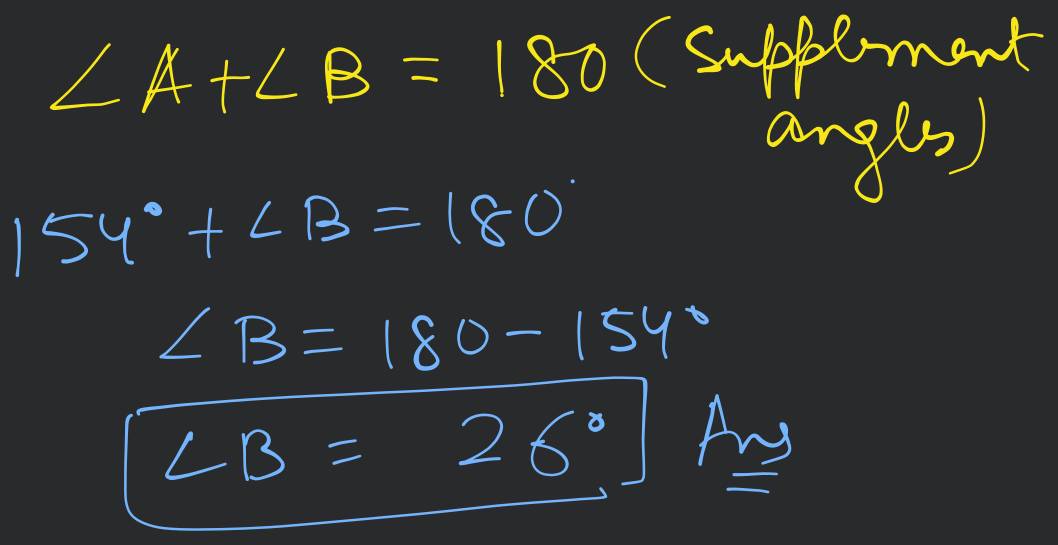 ∠A+∠B = 180 (Supplement
angles)
154° + ∠B = 180°
∠B = 180 - 154°
∠B = 26° Ans